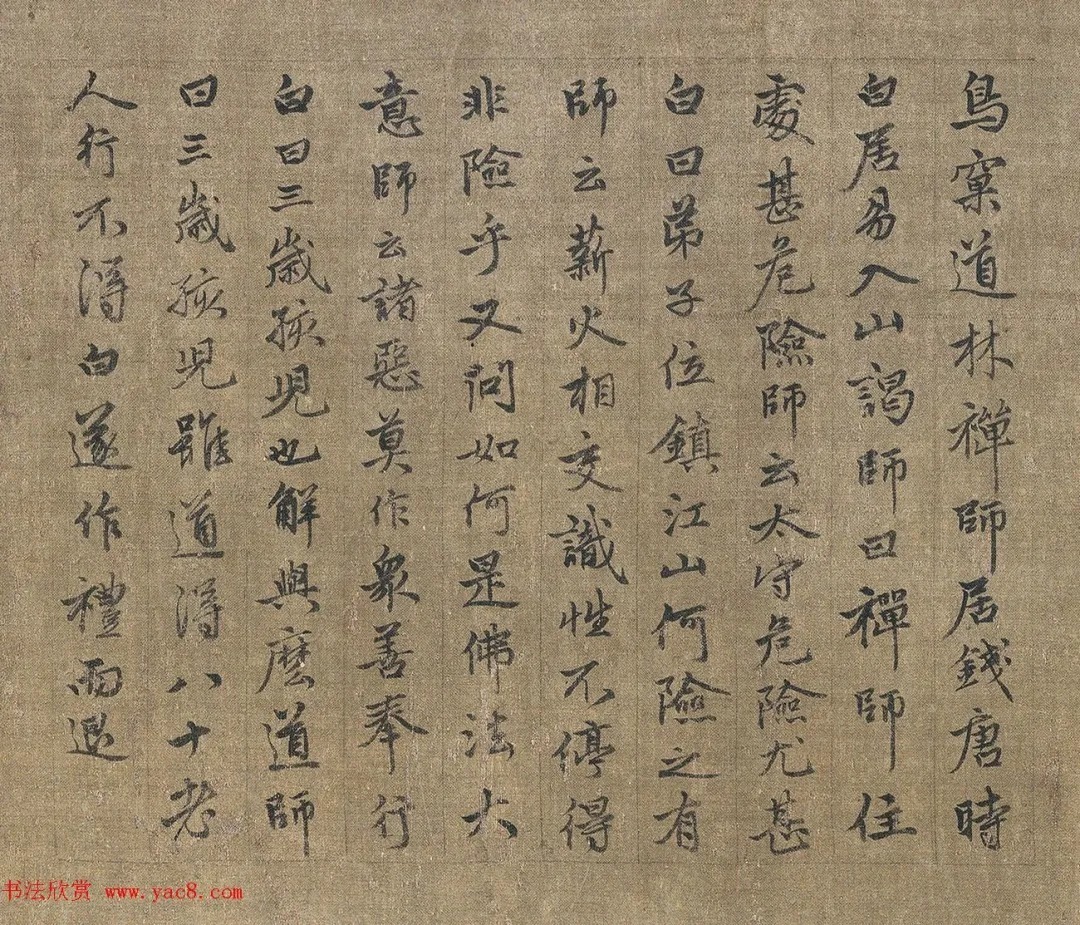 鳥窠道林禪師居錢唐時
白居易入山謁師曰禪師住
處甚危險師云太守危險尤甚
白曰弟子位鎮江山何險之有
師云薪火相交識性不停得
非險乎又問如何是佛法大
意師云諸惡莫作衆善奉行
白曰三歲孩児也解與麽道師
曰三歲孩児雖道得八十老
人行不得白遂作禮而退
书法欣赏 www.yac8.com